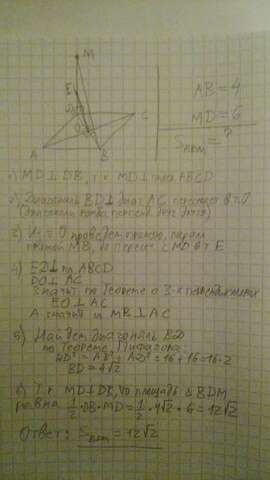 M
E
D
C
O
A
B
AB = 4
MD = 6
S = ?
1) MD ⊥ DB, т.к MD ⊥ плос ABCD
2) Диагональ BD ⊥ диаг AC, пересек в т. O
(диагонали ромба перпенд друг другу)
3) Из т. O проведем прямую, парал
прямой MB, до пересеч с MD в т E
4) ED ⊥ пл ABCD
DO ⊥ AC
Значит по теореме о 3-х перпендикулярах
EO ⊥ AC
А значит и MB ⊥ AC
5) Найдем диагональ BD
по теореме Пифагора
BD² = AB² + AD² = 16 + 16 = 16·2
BD = 4√2
6) Т.к MD ⊥ DB, то площадь Δ BDM
равна 1/2 · DB · MD = 1/2 · 4√2 · 6 = 12√2
Ответ: S = 12√2